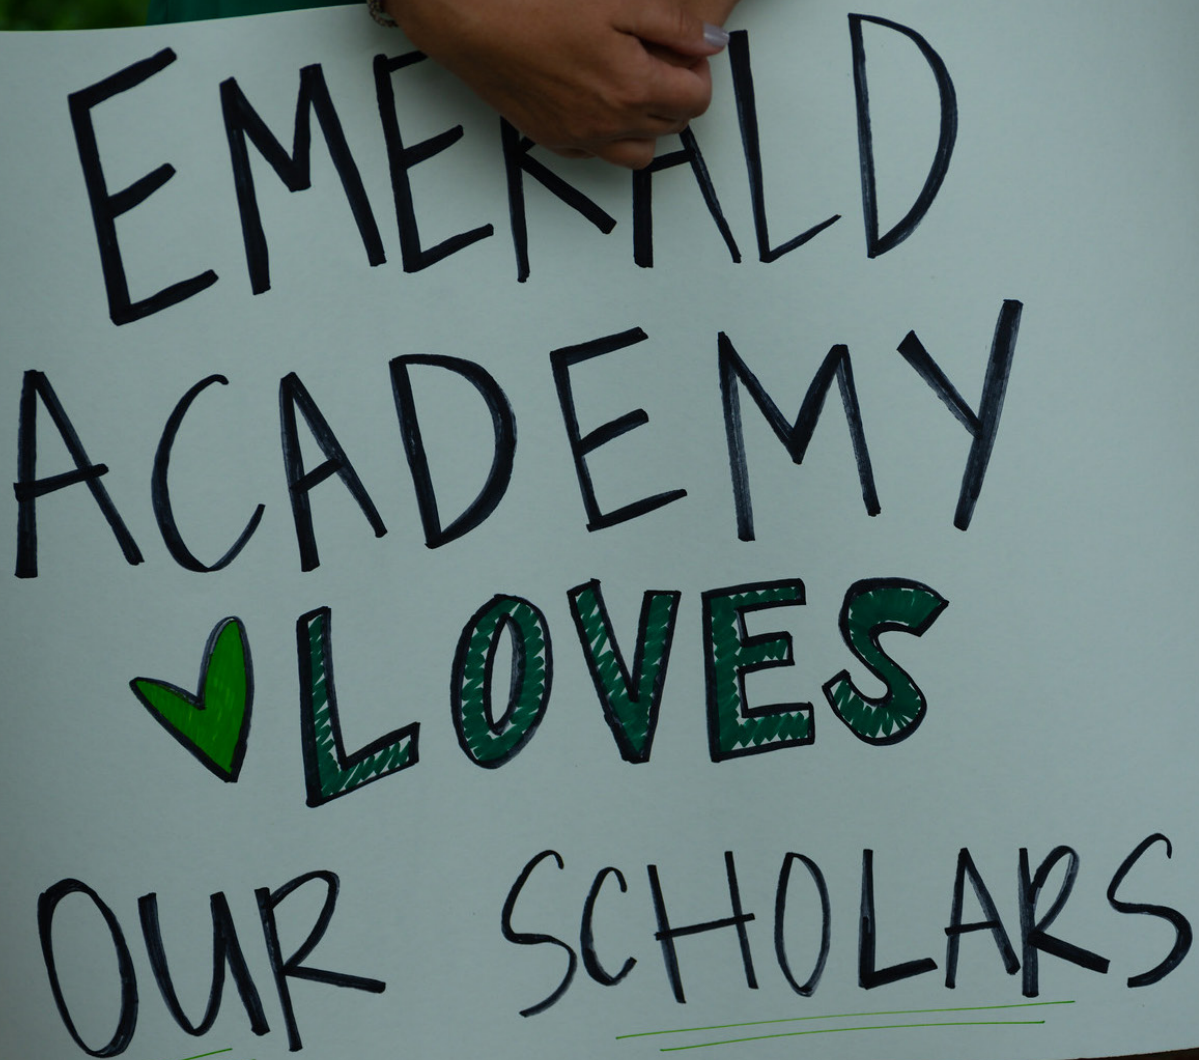 EMERALD
ACADEMY
LOVES
OUR SCHOLARS